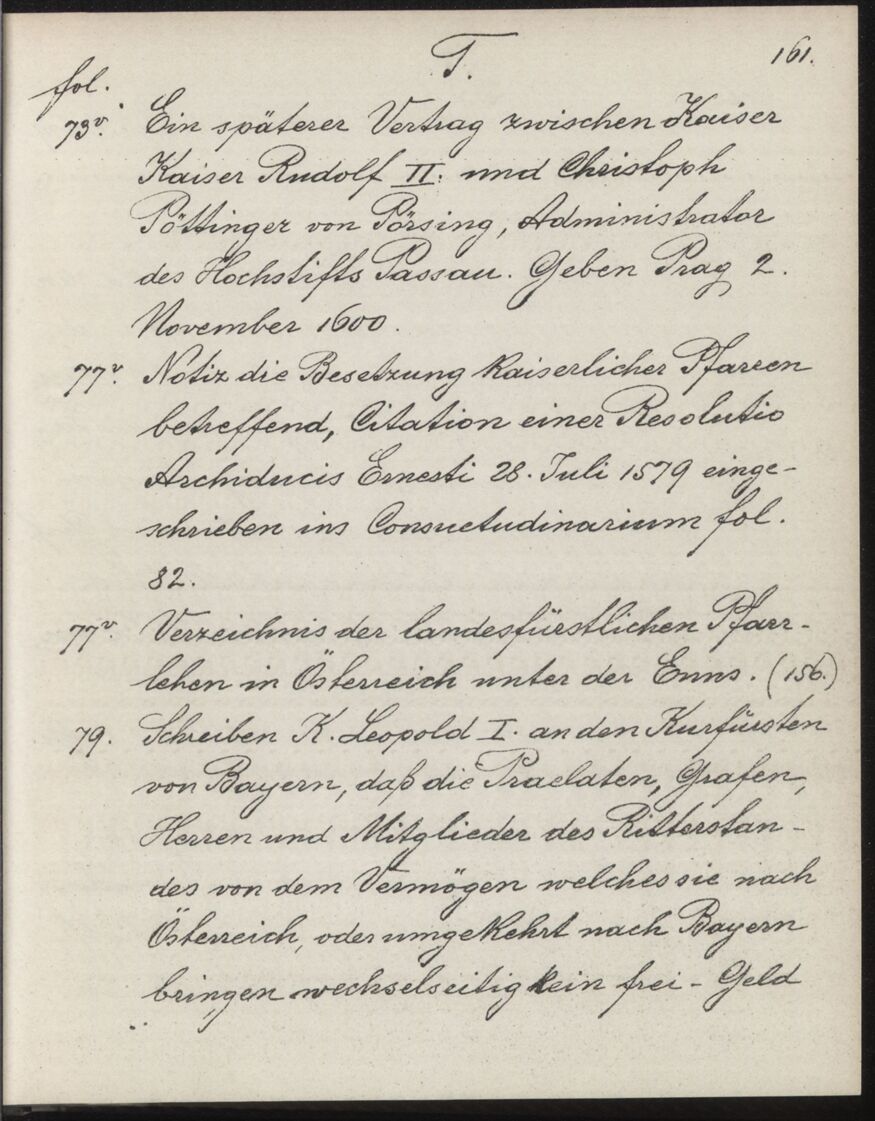 T. 161.
fol.
73v. Ein späterer Vertrag zwischen Kaiser
Kaiser Rudolf II. und Christoph
Pöttinger von Pörsing, Administrator
des Hochstifts Passau. Geben Prag 2.
November 1600.
77v. Notiz die Besetzung Kaiserlicher Pfarren
betreffend, Citation einer Resolutio
Archiducis Ernesti 28. Juli 1579 einge-
schrieben ins Consuetudinarium fol.
82.
77v. Verzeichnis der landesfürstlichen Pfarr-
lehen in Österreich unter der Enns. (156.)
79. Schreiben K. Leopold I. an den Kurfürsten
von Bayern, daß die Praelaten, Grafen,
Herren und Mitglieder des Ritterstan-
des von dem Vermögen welches sie nach
Österreich, oder umgekehrt nach Bayern
bringen wechselseitig kein frei-Geld